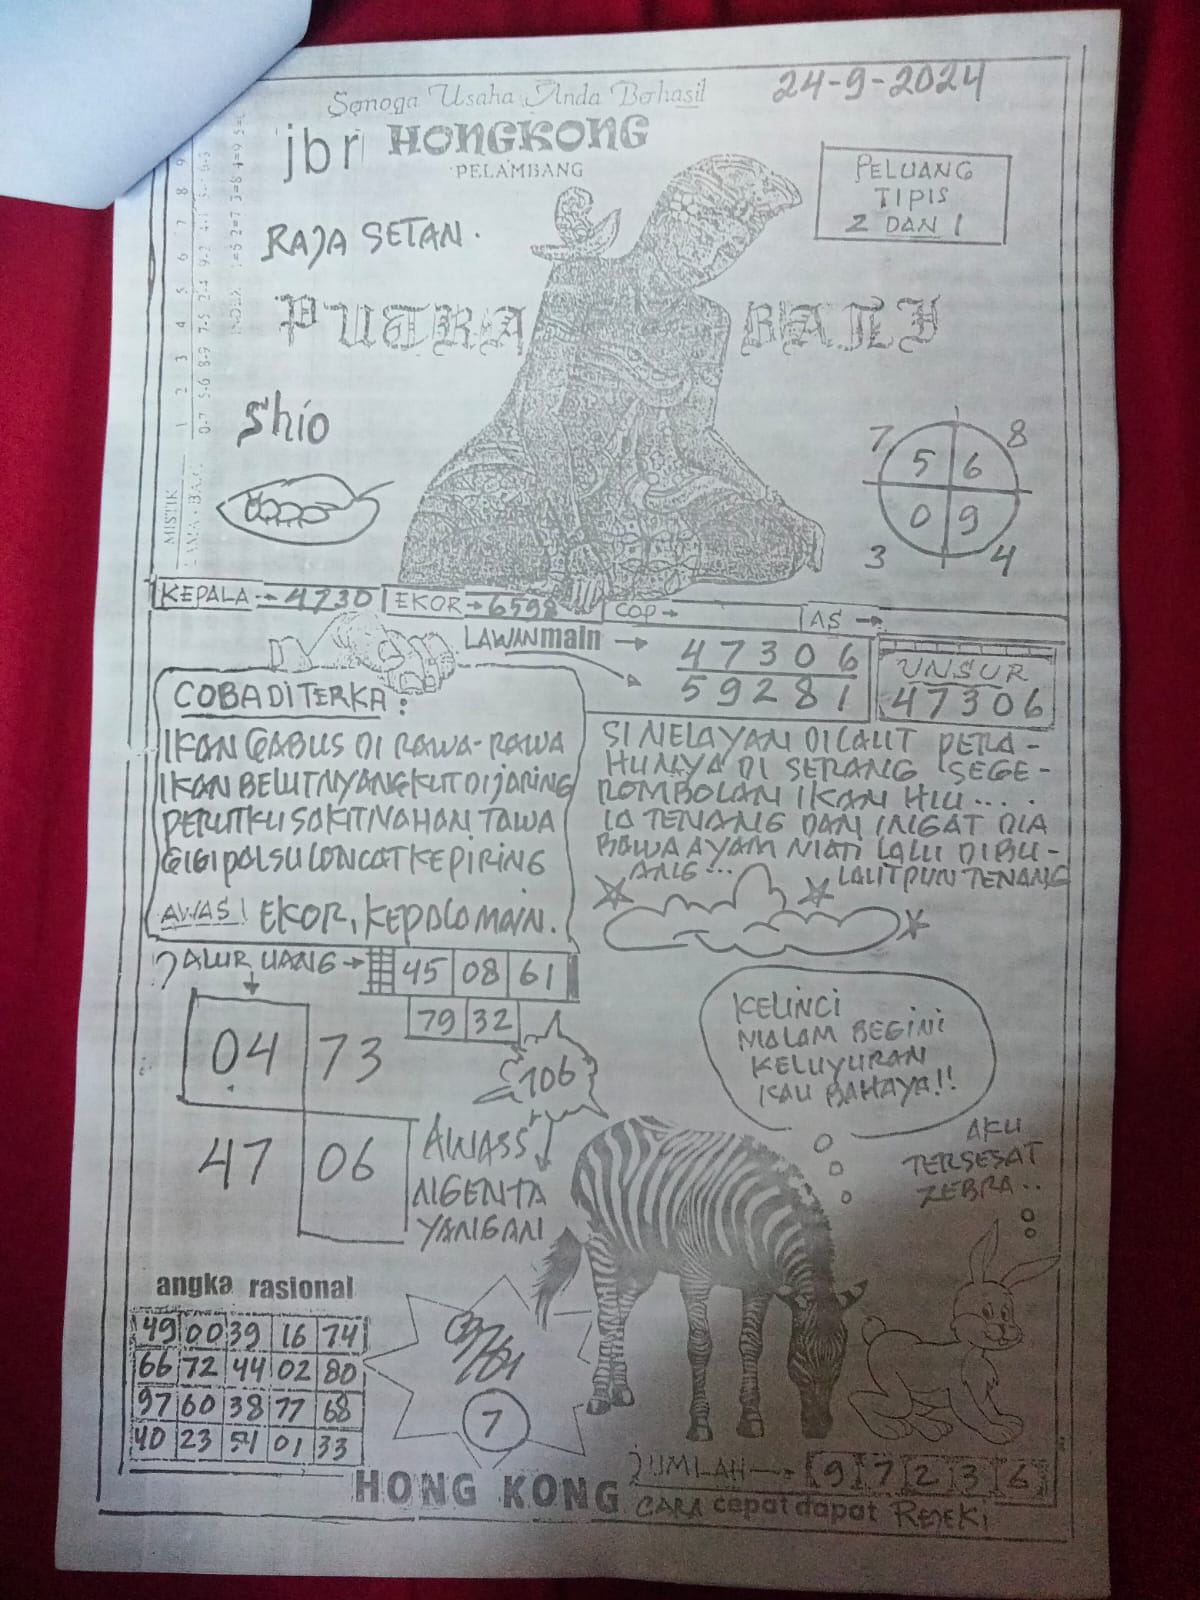 Semoga Usaha Anda Berhasil
24-9-2024
jbr HONGKONG
PELAMBANG
PELUANG
TIPIS
2 DAN 1
RAJA SETAN.
PUTRA
Shio
7 8
5 6
0 9
3 4
MISTIK
INDEX
1 2 3 4 5 6 7 8 9
KEPALA → 4730
EKOR → 6598
COP →
AS →
LAWAN main →
47306
59281
UNSUR
47306
COBA DITERKA:
IKAN GABUS DI RAWA-RAWA
IKAN BELUT NYANGKUT DI JARING
PERUTKU SAKIT NAHAN TAWA
GIGI PALSU LONCAT KE PIRING
AWAS! EKOR, KEPALA MAIN.
SI NELAYAN DILAUT PERA-
HUNYA DI SERANG SEGE-
ROMBOLAN IKAN HIU....
IA TENANG DAN INGAT DIA
BAWA AYAM MATI LALU DIBU-
ANG... LAUTPUN TENANG
JALUR UANG → 45 08 61
79 32
04 73
47 06
106
AWASS
NGENTA
YANGAN
KELINCI
MALAM BEGINI
KELUYURAN
KAU BAHAYA!!
AKU
TERSESAT
ZEBRA..
angka rasional
49 00 39 16 74
66 72 44 02 80
97 60 38 77 68
40 23 51 01 33
7
JUMLAH → 9 7 2 3 6
HONG KONG
CARA cepat dapat REJEKI